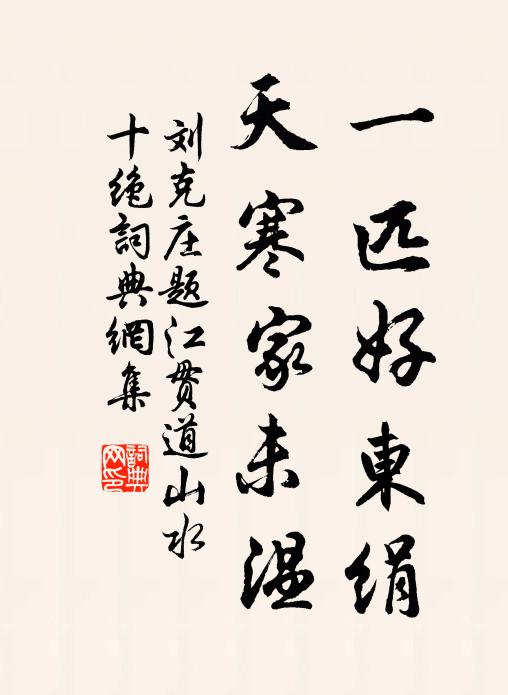 一匹好東绢
天寒家未温
刘克庄题江贯道山水
十绝詞典網集
詞典网印